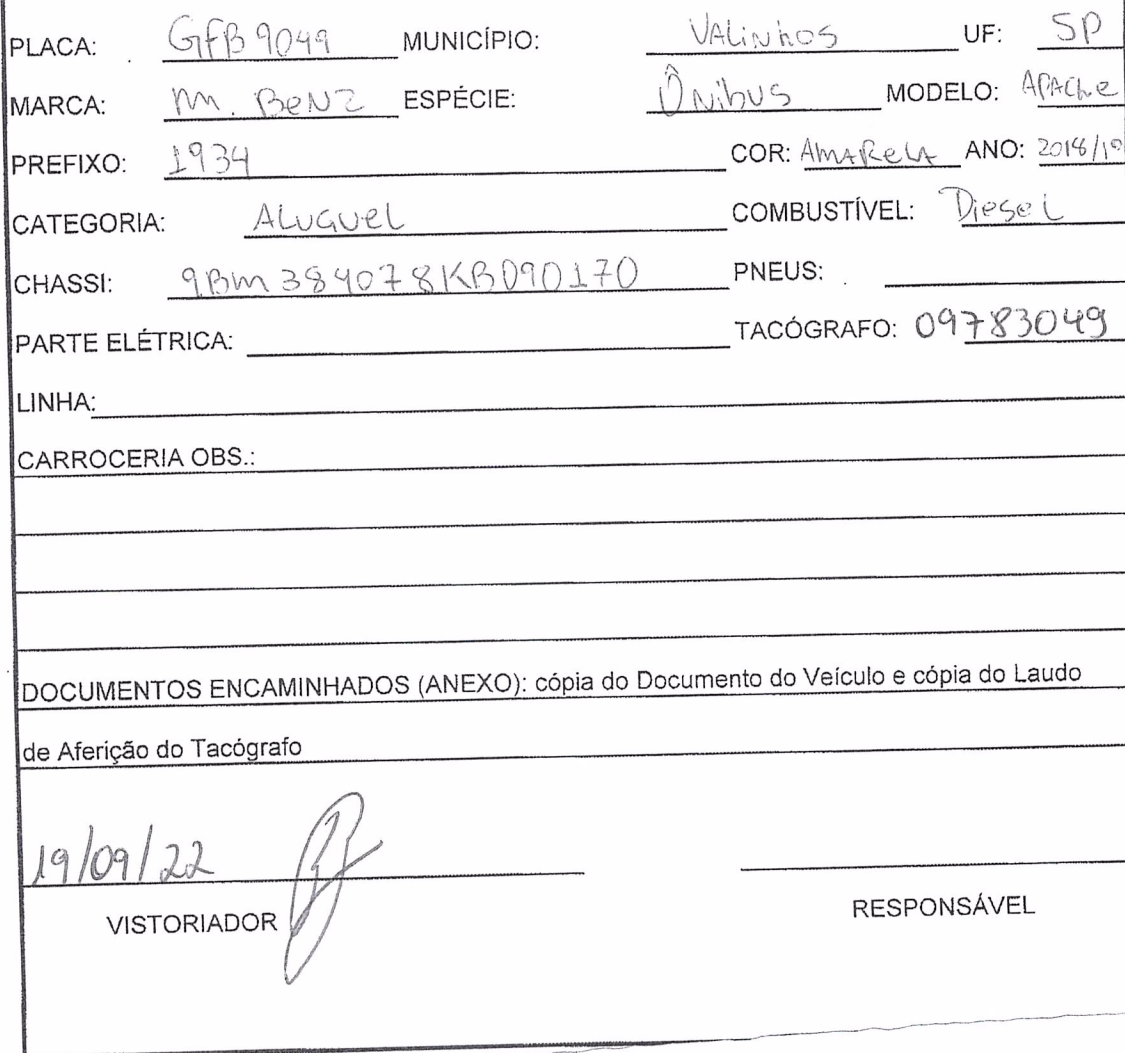 PLACA: GFB 9049 MUNICÍPIO: VALINHOS UF: SP
MARCA: M. BENZ ESPÉCIE: ÔNIBUS MODELO: APACHE
PREFIXO: 1934 COR: AMARELA ANO: 2018/19
CATEGORIA: ALUGUEL COMBUSTÍVEL: Diesel
CHASSI: 9BM384078KB090170 PNEUS:
PARTE ELÉTRICA: TACÓGRAFO: 09783049
LINHA:
CARROCERIA OBS.:
DOCUMENTOS ENCAMINHADOS (ANEXO): cópia do Documento do Veículo e cópia do Laudo
de Aferição do Tacógrafo
19/09/22
VISTORIADOR RESPONSÁVEL